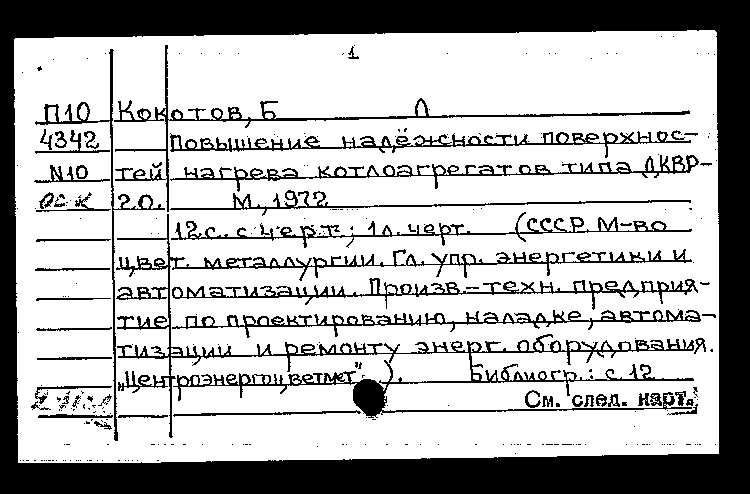 1
П10 Кокотов, Б Л
4342 Повышение надёжности поверхнос-
N10 тей нагрева котлоагрегатов типа ДКВР-
ос к 20. М., 1972
12 с. с черт.; 1 л. черт. (СССР. М-во
цвет. металлургии. Гл. упр. энергетики и
автоматизации. Произв.-техн. предприя-
тие по проектированию, наладке, автома-
тизации и ремонту энерг. оборудования.
„Центроэнергоцветмет"). Библиогр.: с. 12
См. след. карт.